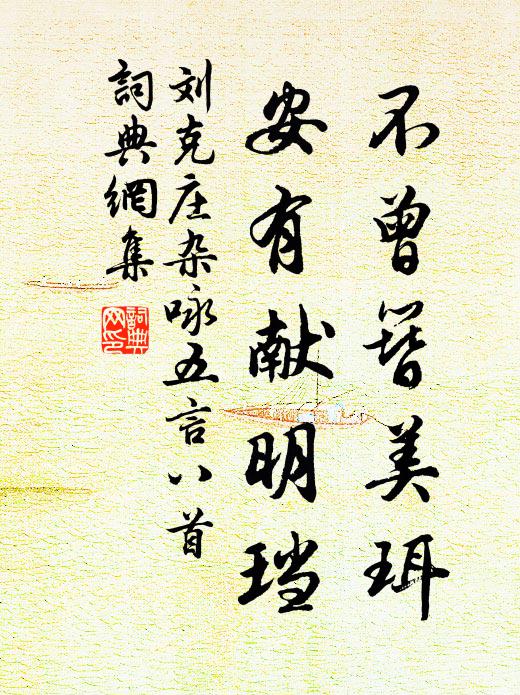 不曾簪美珥
安有献明珰
刘克庄杂咏五言八首
詞典網集
詞典网印